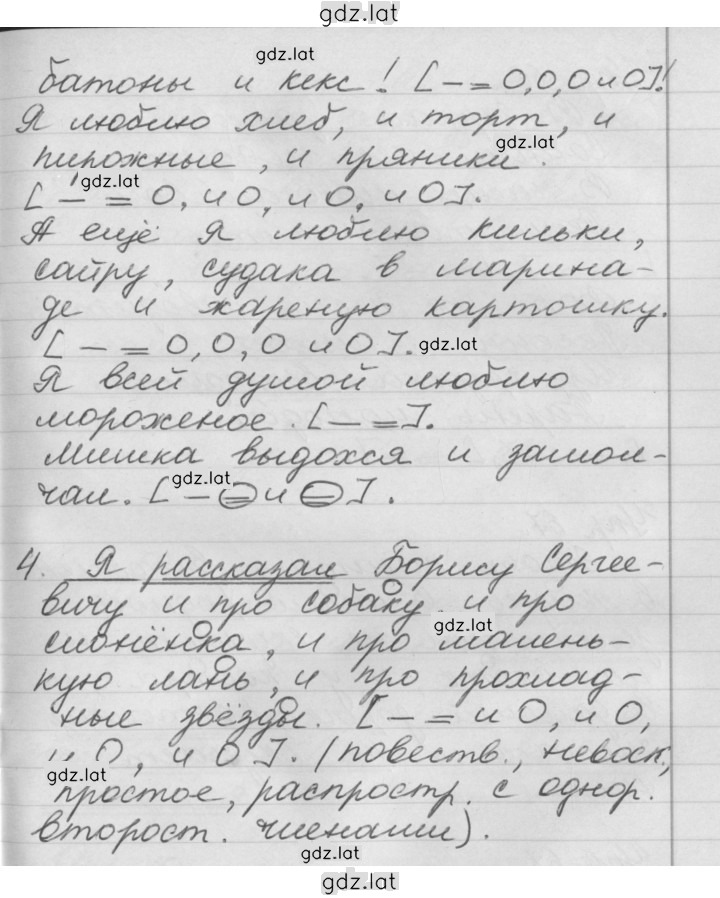 gdz.lat
gdz.lat
батоны и кекс! [– = О, О, О и О]!
Я люблю хлеб, и торт, и
gdz.lat
пирожные, и пряники.
gdz.lat
[– = О, и О, и О, и О].
А ещё я люблю кильки,
сайру, судака в марина-
де и жареную картошку.
[– = О, О, О и О]. gdz.lat
Я всей душой люблю
мороженое. [– =].
Мишка выдохся и замол-
gdz.lat
чал. [– = и =].
4. Я рассказал Борису Сергее-
вичу и про собаку, и про
gdz.lat
слонёнка, и про малень-
кую лань, и про прохлад-
ные звёзды. [– = и О, и О,
и О, и О]. (повеств., невоск.,
gdz.lat
простое, распростр. с однор.
второст. членами).
gdz.lat
gdz.lat